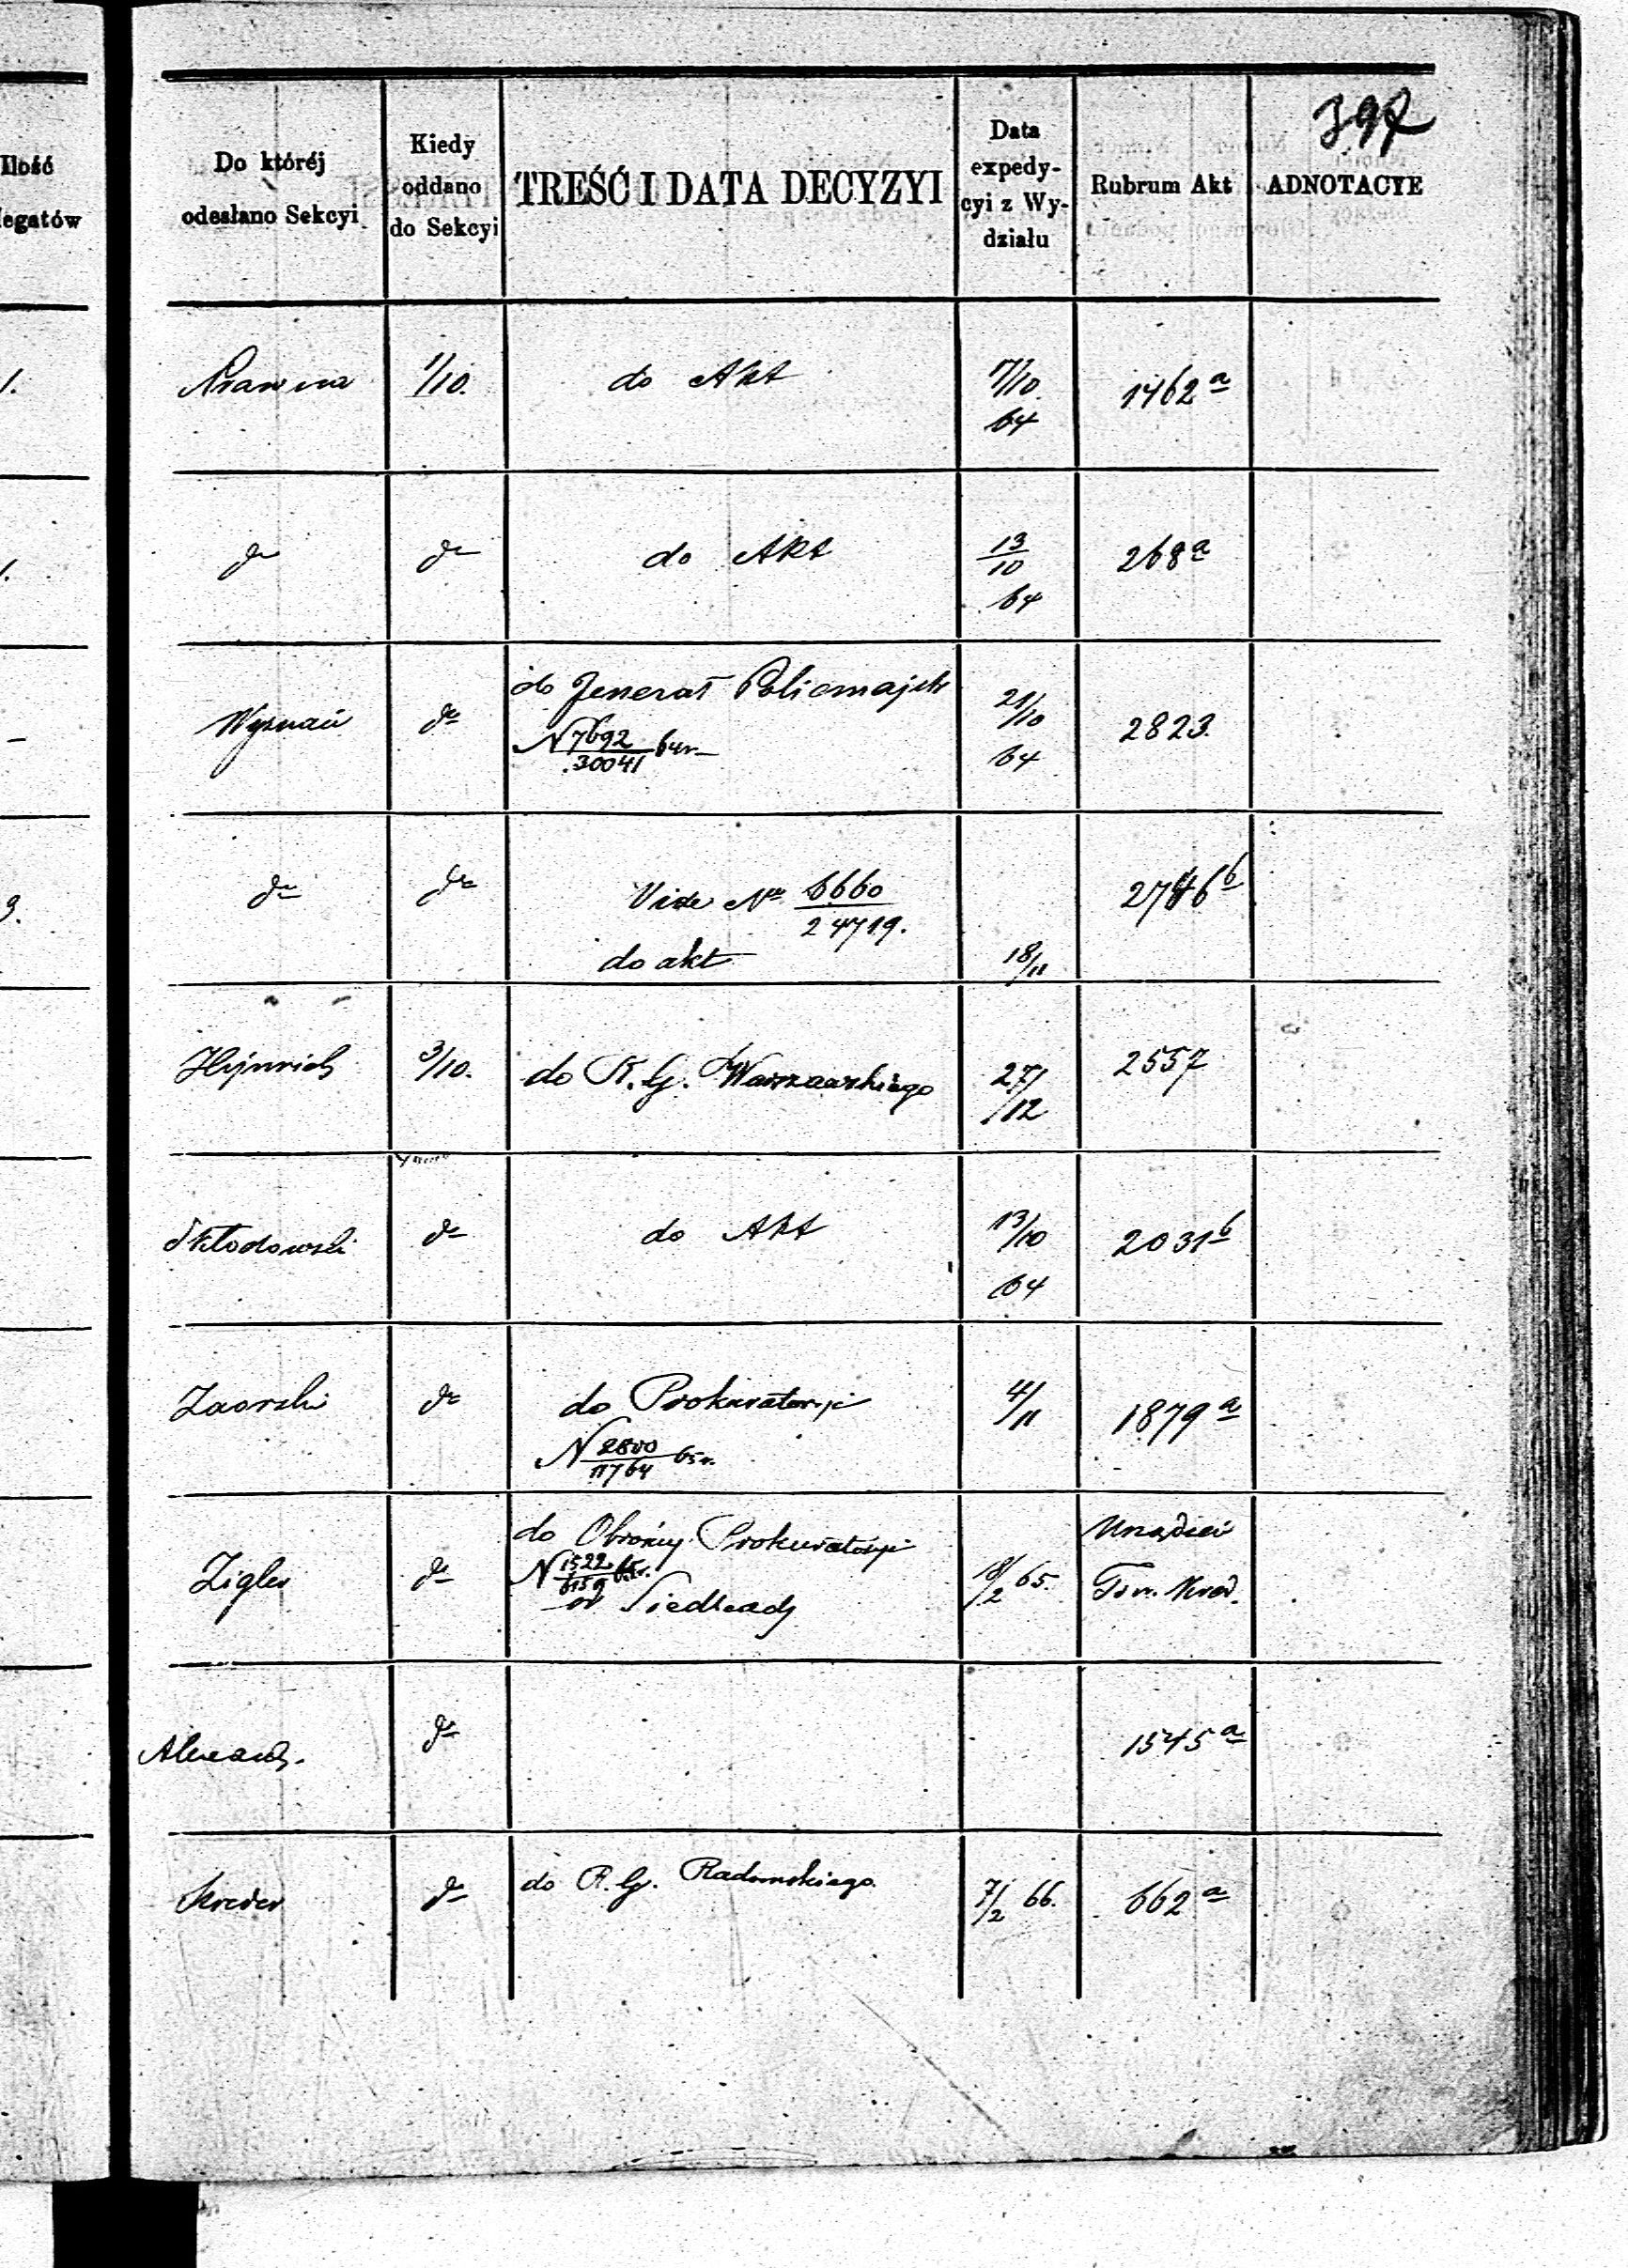 397
Ilość
legatów
Do któréj
odesłano Sekcyi
Kiedy
oddano
do Sekcyi
TREŚĆ I DATA DECYZYI
Data
expedy-
cyi z Wy-
działu
Rubrum Akt
ADNOTACYE
1. Prawna 1/10. do Akt 17/10. 1462 a
64
1. do do do Akt 13/10 268 a
64
do Jenerał Policmajstr
Wyznań do N 7692/30041 64r 21/10 2823.
64
9. do do Vide No 6660/24719. 2746 b
do akt 18/11
Hejnrich 3/10. do R. G. Warszawskiego 27/12 2557
Skłodowski do do Akt 13/10 2031 b
64
Zaorski do do Prokuratoryi 4/11 1879 a
N 2800/11764 65r.
do Obrońcy Prokuratoryi
Zigler do N 1522/6159 65r. 18/2 65. Tow. Kred.
w Siedlcach
do 1545 a
Kreder do do R. G. Radomskiego. 7/2 66. 662 a